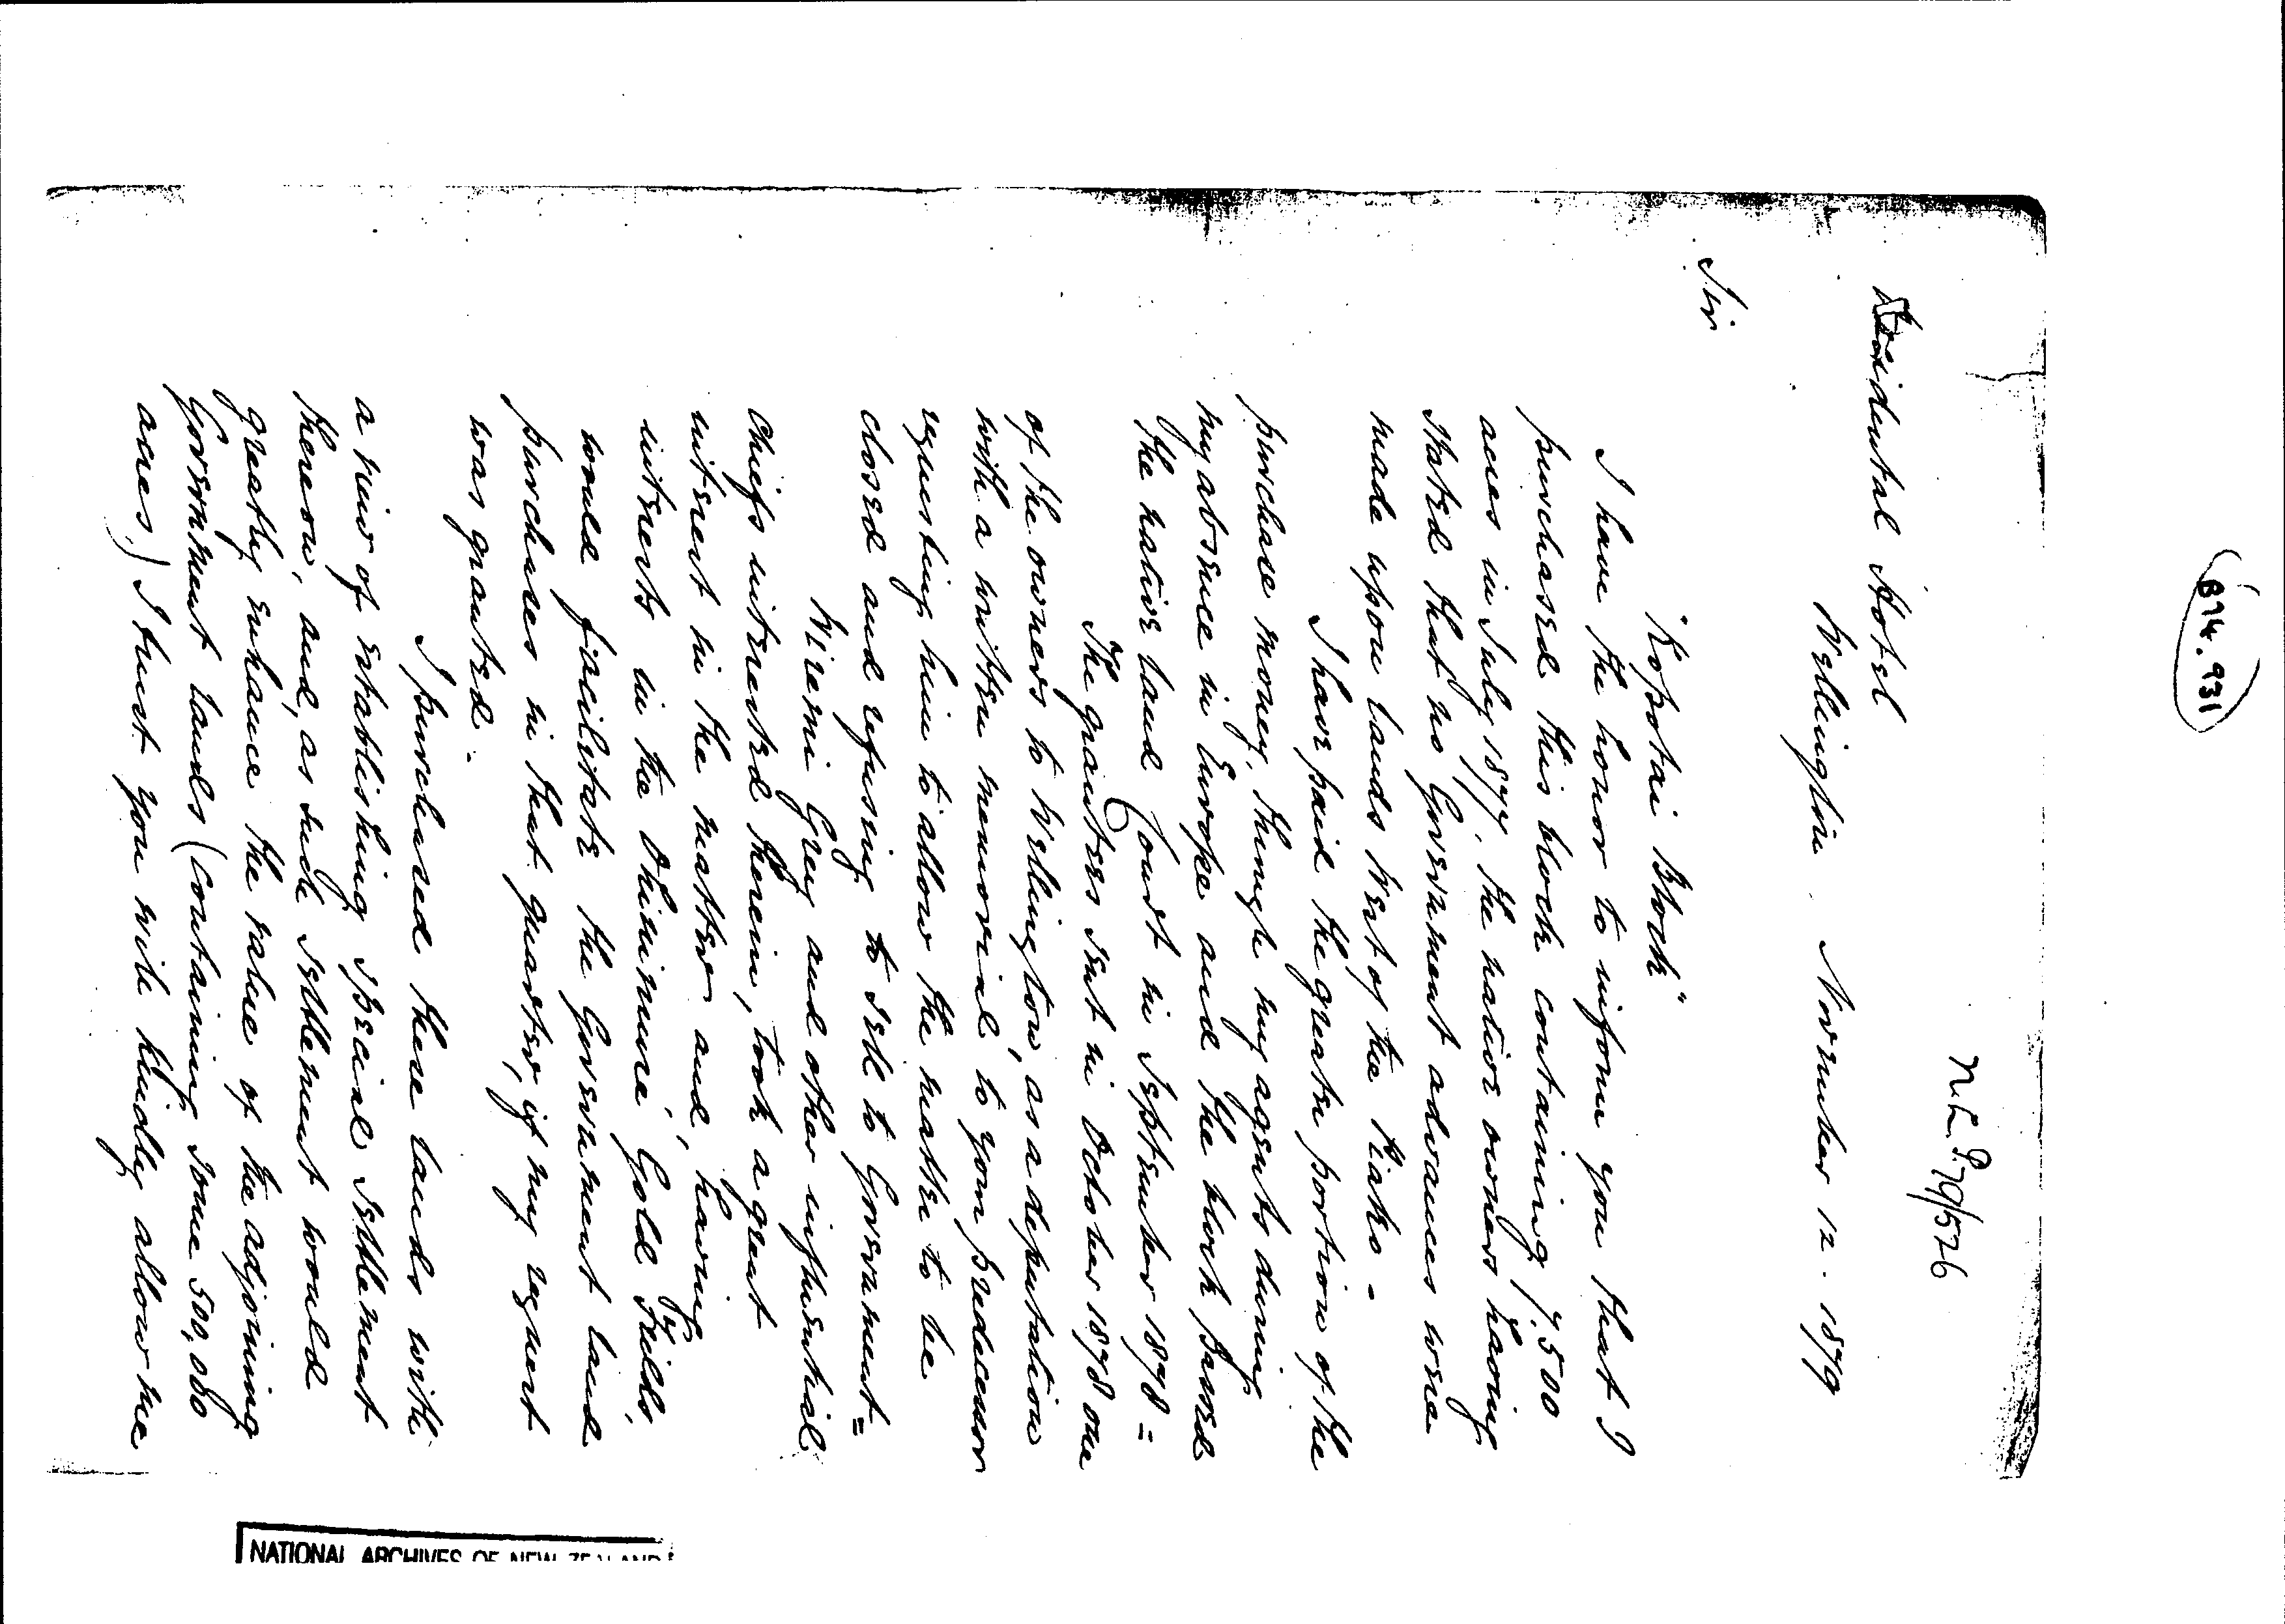 B74.931
N.L.P. 79/5726
Occidental Hotel
Wellington. November 12. 1879
Sir
"Kopotai Block"
I have the honor to inform you that I
purchased this block containing 7,500
acres in July 1877, the native owners having
stated that no Government advances were
made upon lands West of the Piako -
I have paid the greater portion of the
purchase money, through my agents during
my absence in Europe and the block passed
the native land Court in September 1878 =
The grantees sent in October 1878 one
of the owners to Wellington, as a deputation
with a written memorial to your predecessor
requesting him to allow the matter to be
closed and refusing to sell to Government =
Wiremi Grey and other influential
chiefs interested therein, took a great
interest in the matter and, having
interests in the Ohinimuri Gold Fields,
would facilitate the Government land
purchases in that quarter, if my request
was granted.
I purchased these lands with
a view of establishing special Settlement
thereon, and, as such Settlement would
greatly enhance the value of the adjoining
Government lands (Containing some 500,000
acres) I trust you will kindly allow me
NATIONAL ARCHIVES OF NEW ZEALAND